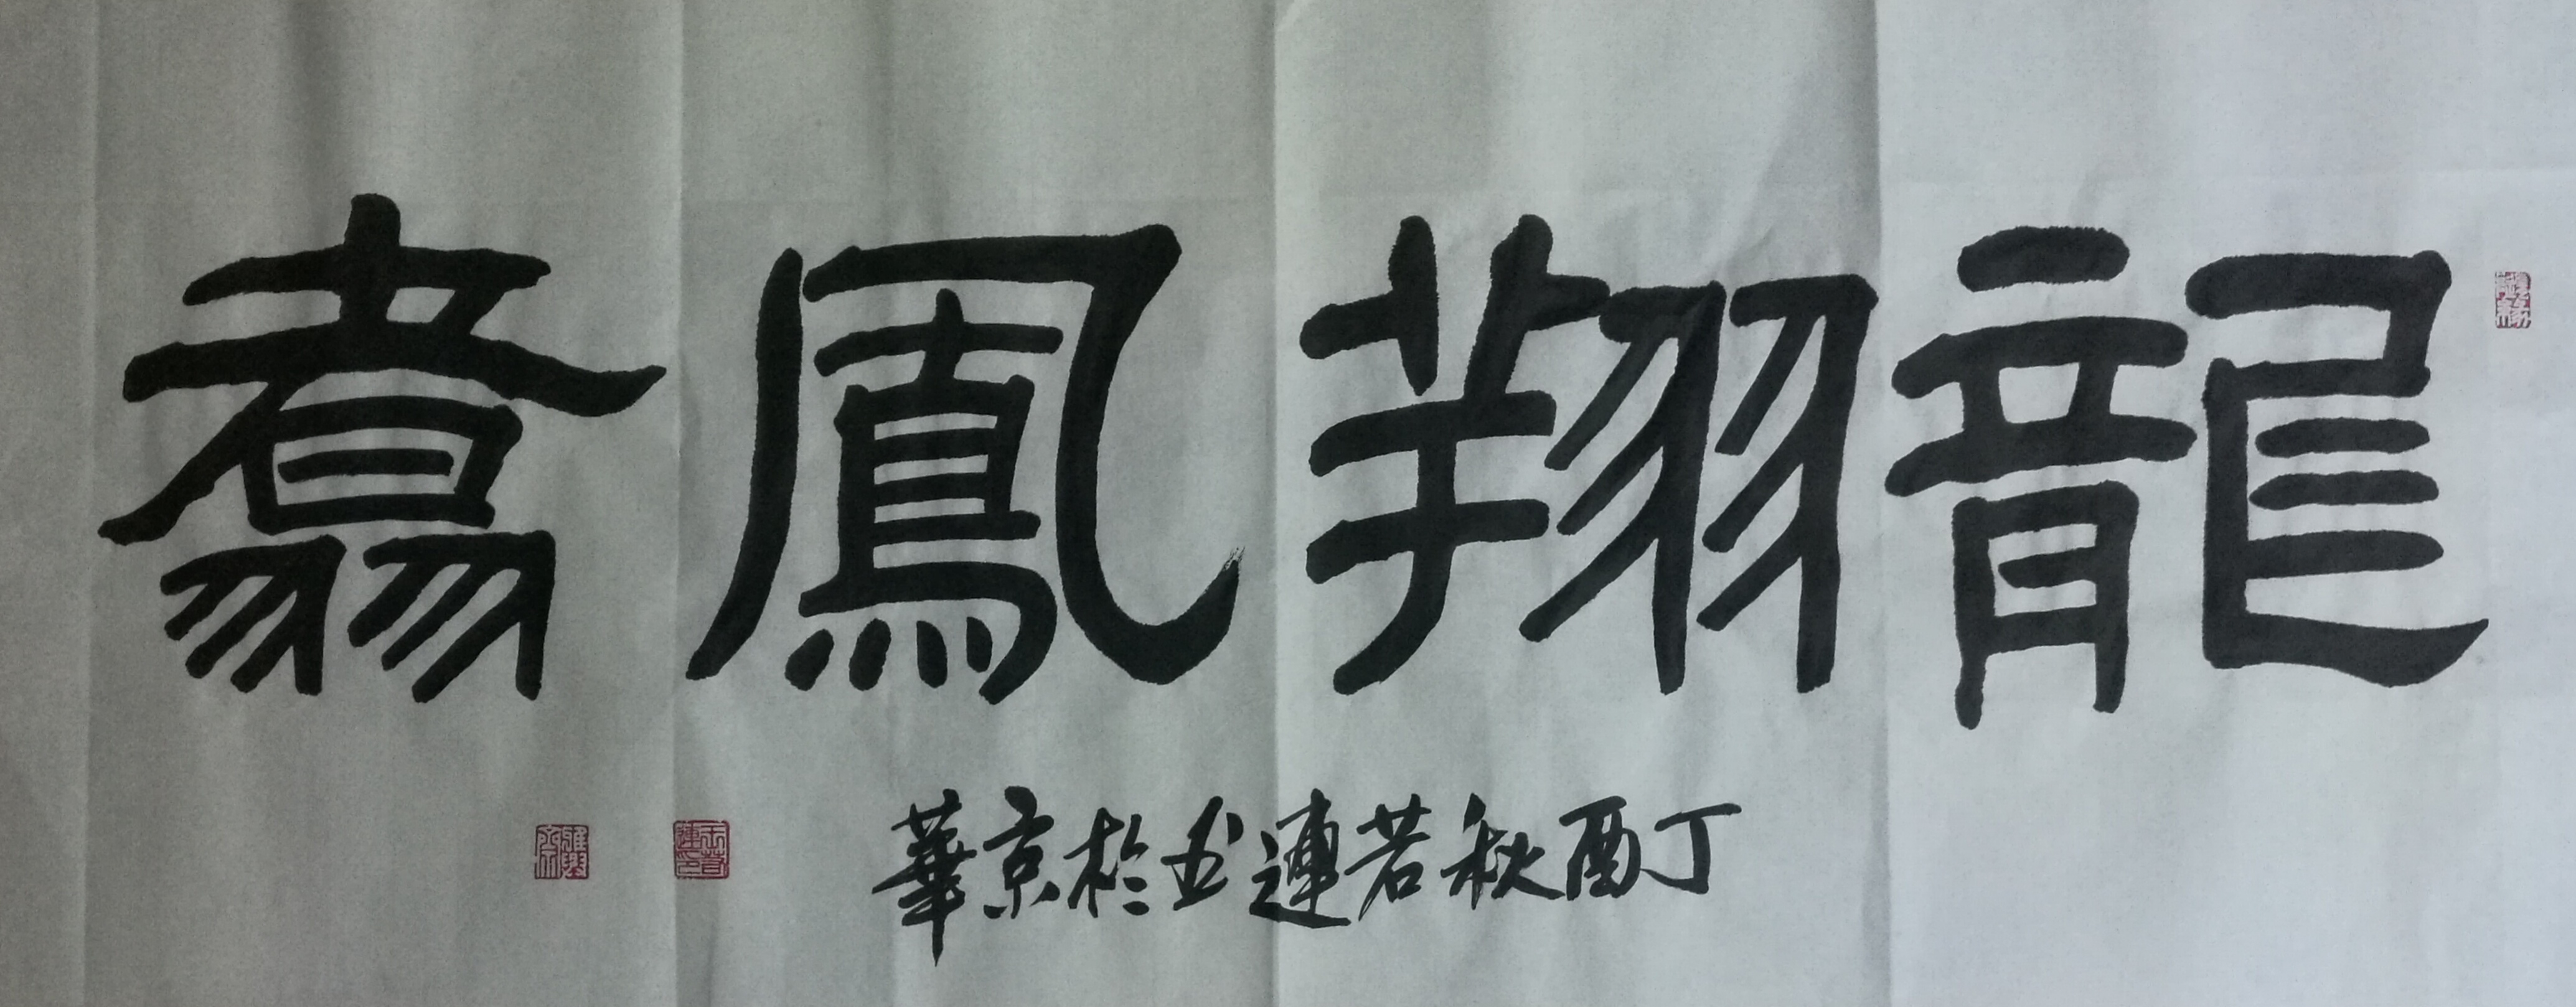 龍翔鳳翥
丁酉秋若連书於京華